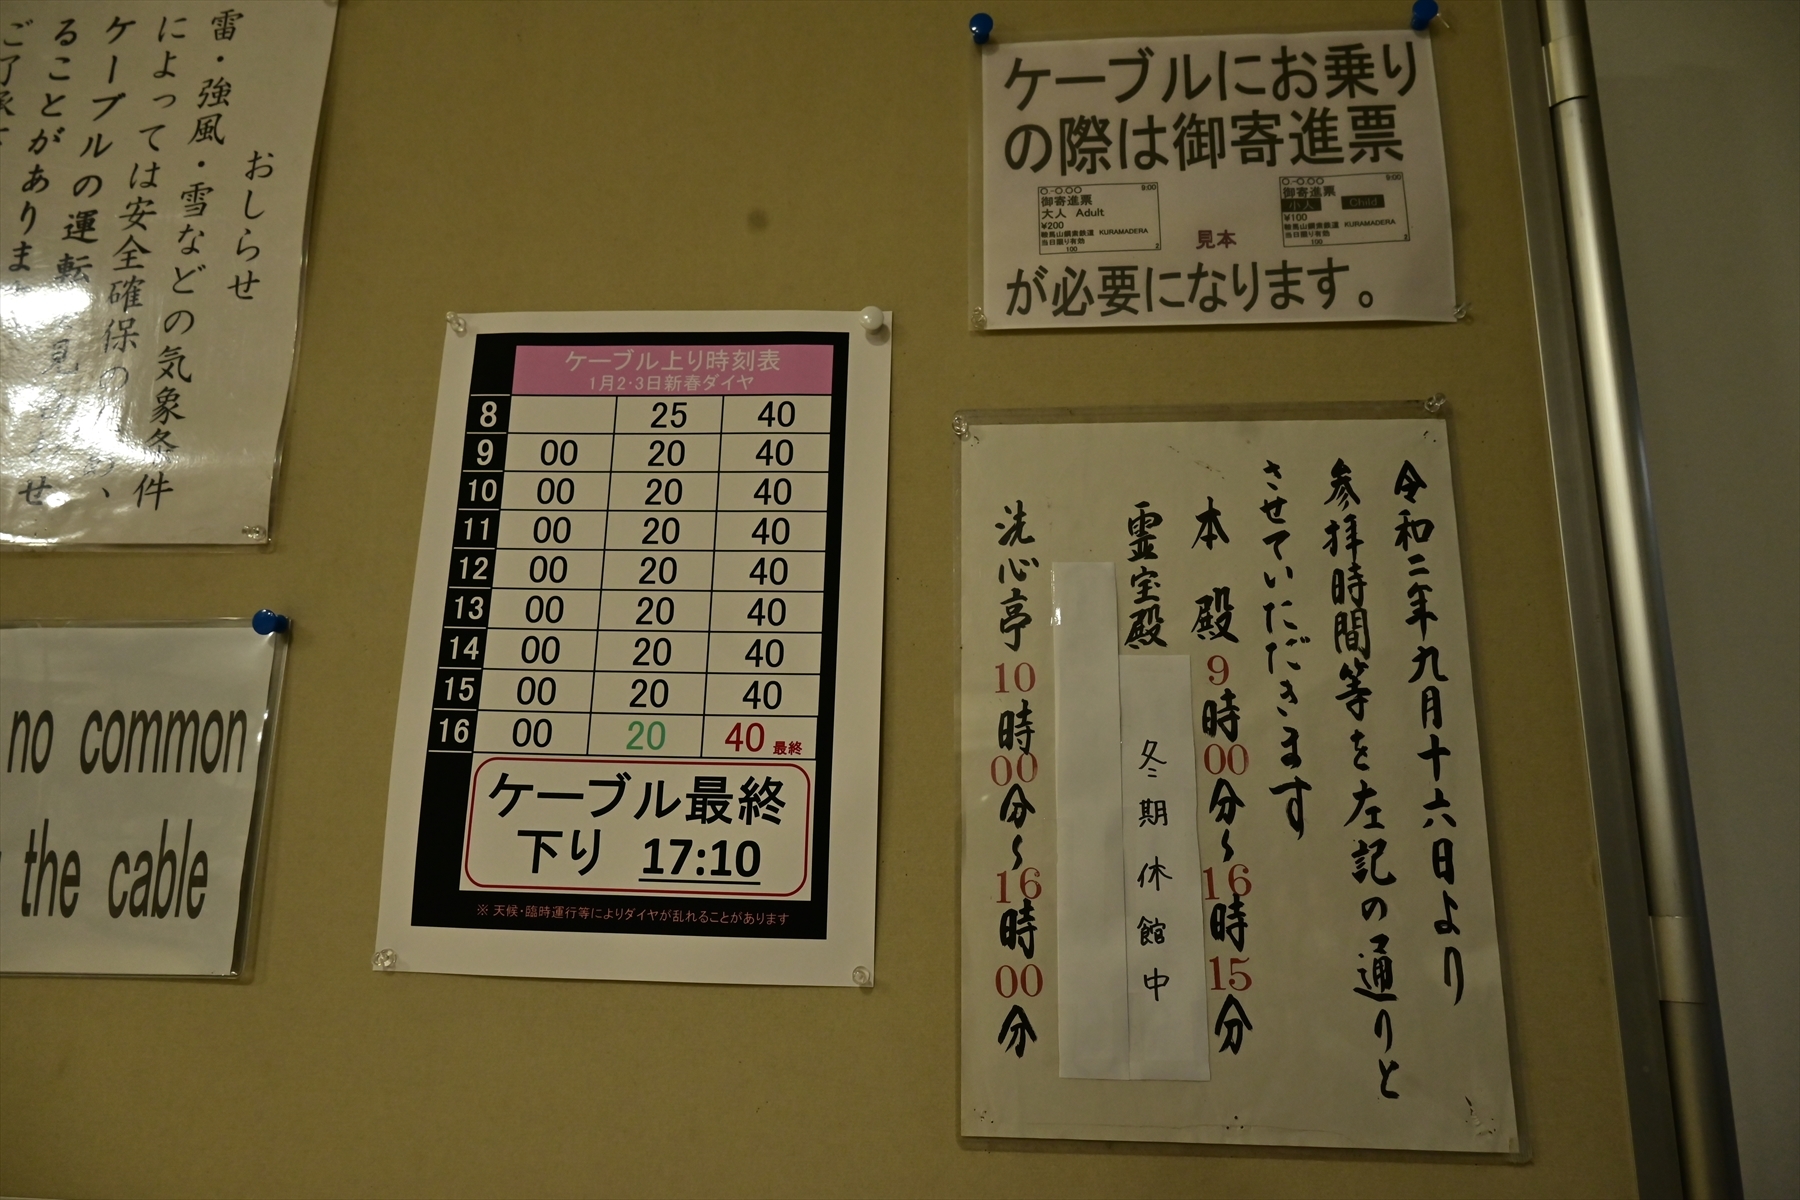 おしらせ
雷・強風・雪などの気象条件
によっては安全確保の
ケーブルの運転
ることがありま
no common
the cable
ケーブル上り時刻表
1月2・3日新春ダイヤ
8 25 40
9 00 20 40
10 00 20 40
11 00 20 40
12 00 20 40
13 00 20 40
14 00 20 40
15 00 20 40
16 00 20 40 最終
ケーブル最終
下り 17:10
※ 天候・臨時運行等によりダイヤが乱れることがあります
ケーブルにお乗り
の際は御寄進票
〇-〇.〇〇 9:00
御寄進票
大人 Adult
¥200
鞍馬山鋼索鉄道 KURAMADERA
当日限り有効
100 2
見本
〇-〇.〇〇 9:00
御寄進票
小人 Child
¥100
鞍馬山鋼索鉄道 KURAMADERA
当日限り有効
100 2
が必要になります。
令和二年九月十六日より
参拝時間等を左記の通りと
させていただきます
本殿 9時00分~16時15分
霊宝殿 冬期休館中
洗心亭 10時00分~16時00分